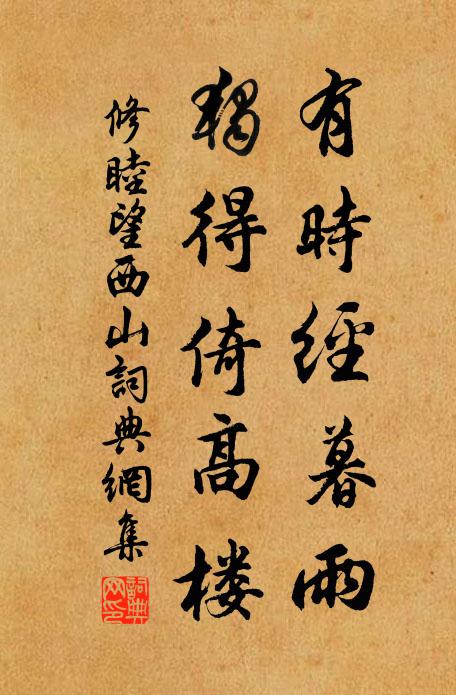 有時經暮雨
獨得倚高樓
修睦望西山詞典網集
詞典
网印